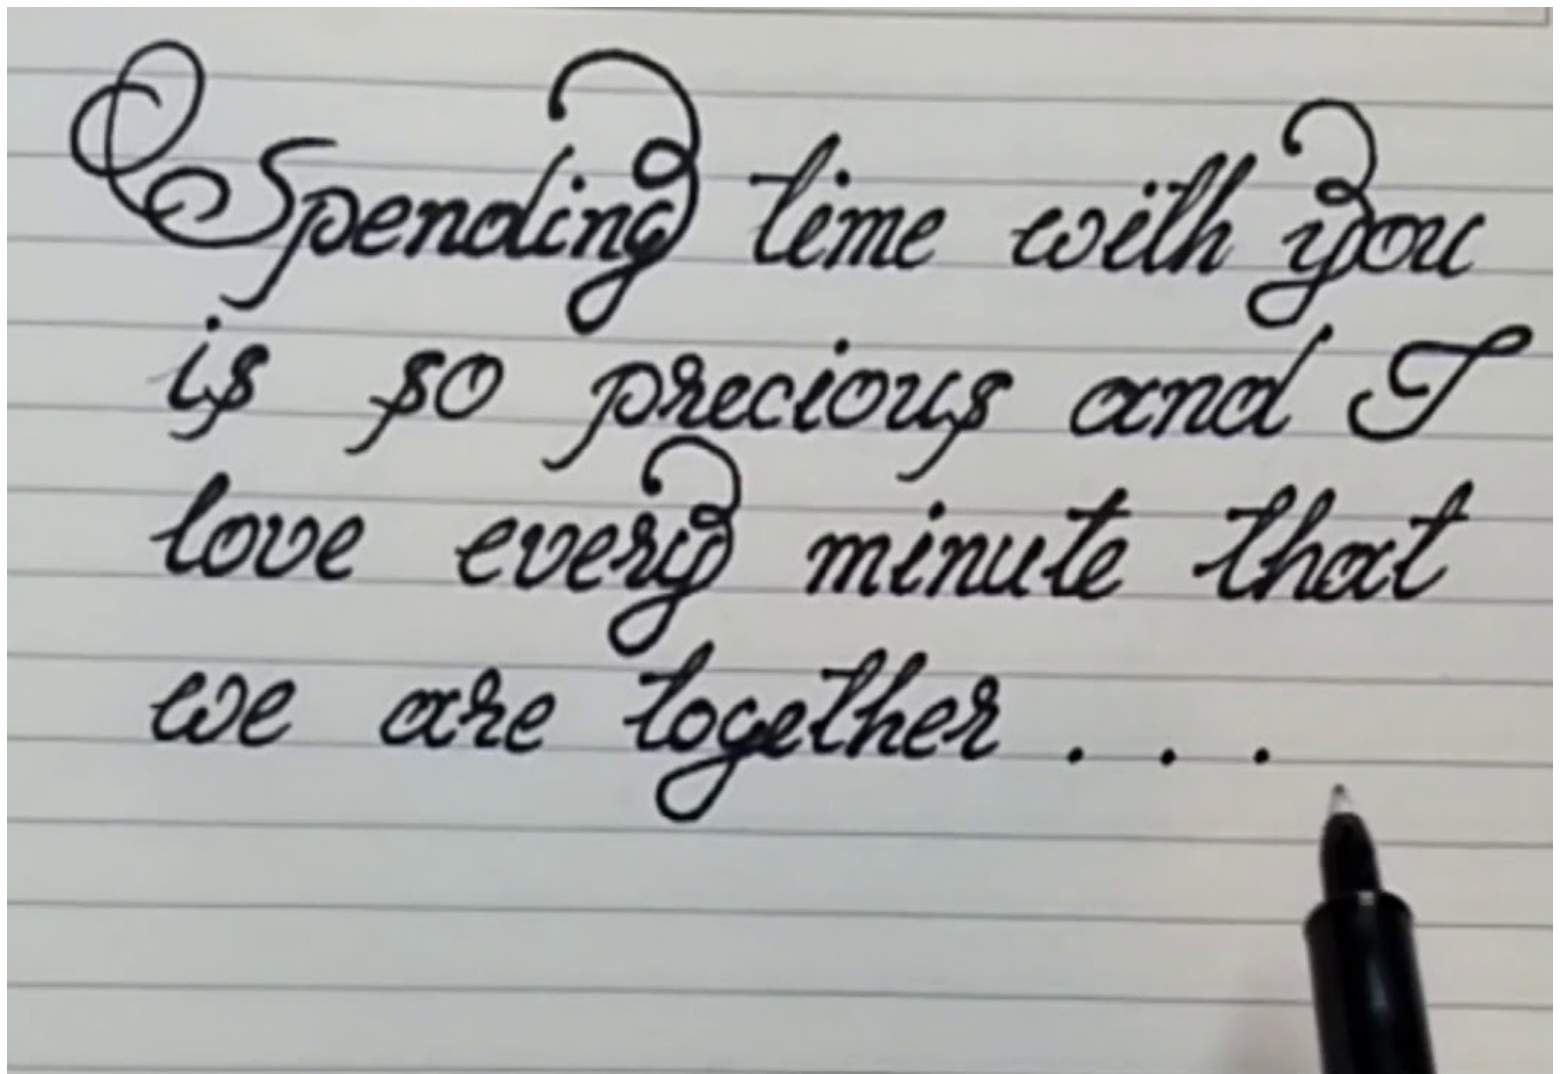 Spending time with you
is so precious and I
love every minute that
we are together . . .